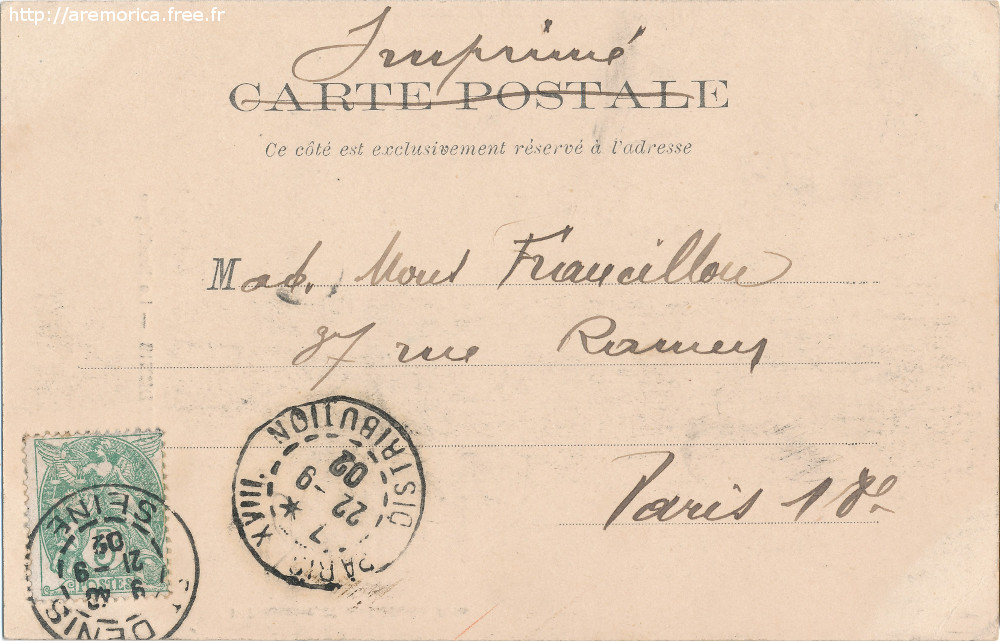 http://aremorica.free.fr
Imprimé
CARTE POSTALE
Ce côté est exclusivement réservé à l'adresse
Mad. Mont Francillon
37 rue Ramey
Paris 18e
PARIS XVIII
DISTRIBUTION
7
22 -9
02
POSTES
5
St DENIS
SEINE
21 -9
02